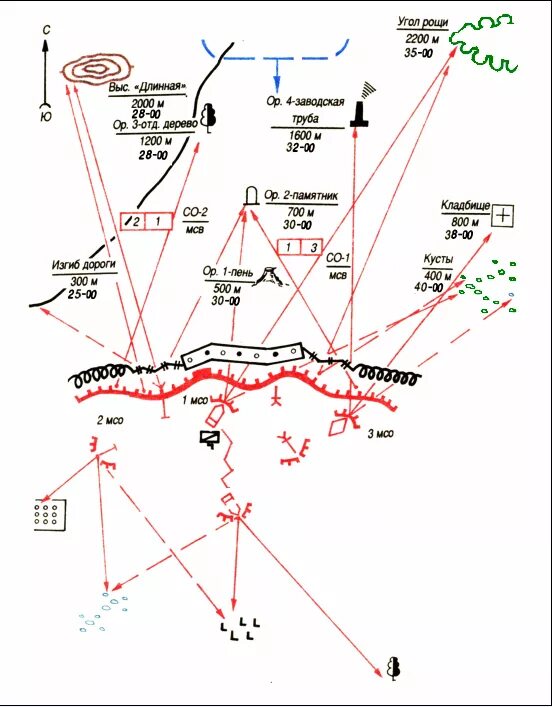 С
Ю
Угол рощи
2200 м
35-00
Выс. «Длинная»
2000 м
28-00
Ор. 3-отд. дерево
1200 м
28-00
Ор. 4-заводская
труба
1600 м
32-00
Ор. 2-памятник
700 м
30-00
Кладбище
800 м
38-00
2 1
СО-2
мсв
1 3
СО-1
мсв
Изгиб дороги
300 м
25-00
Ор. 1-пень
500 м
30-00
Кусты
400 м
40-00
1 мсо
2 мсо
3 мсо